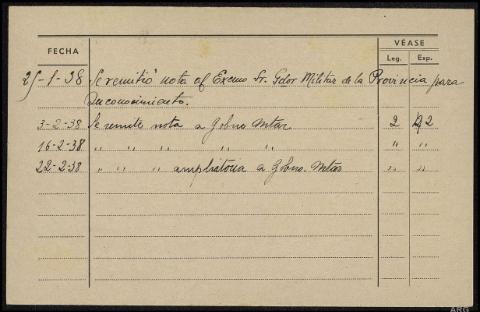 VÉASE
FECHA Leg. Exp.
25-1-38 Se remitió nota al Excmo Sr. Gdor Militar de la Provincia para
su conocimiento.
3-2-38 Se remite nota a Gobno Mtar 2 2
16-2-38 " " " " " " " "
22-2-38 " " " ampliatoria a Gobno. Mtar " "
ARG